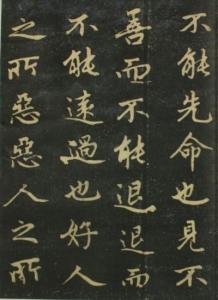 不能先命也見不
善而不能退退而
不能遠過也好人
之所惡惡人之所